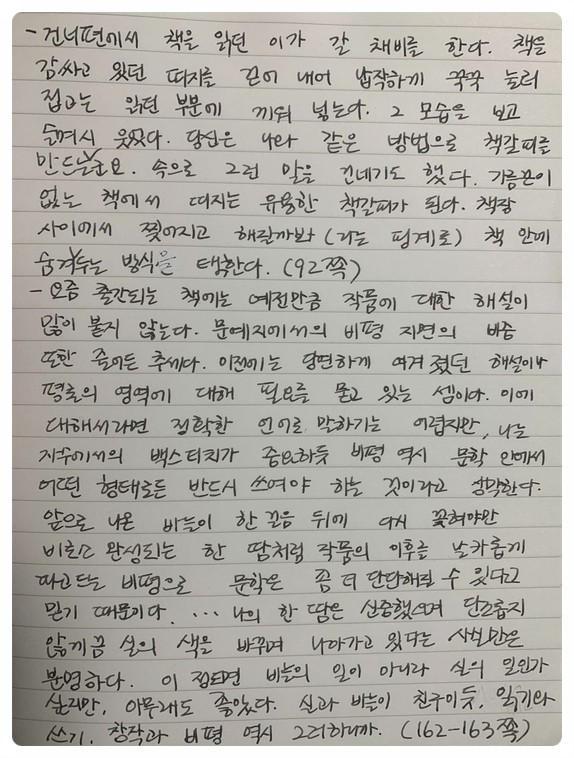 - 건너편에서 책을 읽던 이가 갈 채비를 한다. 책을
감싸고 있던 띠지를 걷어 내어 납작하게 꾹꾹 눌러
접고는 읽던 부분에 끼워 넣는다. 그 모습을 보고
슬며시 웃었다. 당신은 나와 같은 방법으로 책갈피를
만드는군요. 속으로 그런 말을 건네기도 했다. 가름끈이
없는 책에서 띠지는 유용한 책갈피가 된다. 책장
사이에서 찢어지고 해질까봐 (라는 핑계로) 책 안에
숨겨두는 방식을 택한다. (92쪽)
- 요즘 출간되는 책에는 예전만큼 작품에 대한 해설이
많이 붙지 않는다. 문예지에서의 비평 지면의 비중
또한 줄어든 추세다. 이전에는 당연하게 여겨졌던 해설이나
평론의 영역에 대해 필요를 묻고 있는 셈이다. 이에
대해서라면 정확한 언어로 말하기는 어렵지만, 나는
자수에서의 백스티치가 중요하듯 비평 역시 문학 안에서
어떤 형태로든 반드시 쓰여야 하는 것이라고 짐작한다.
앞으로 나온 바늘이 한 걸음 뒤에 다시 꽂혀야만
비로소 완성되는 한 땀처럼 작품의 이후를 날카롭게
파고드는 비평으로 문학은 좀 더 단단해질 수 있다고
믿기 때문이다. ··· 나의 한 땀은 신중했으며 단조롭지
않게끔 실의 색을 바꾸며 나아가고 있다는 사실만은
분명하다. 이 정도면 바늘의 일이 아니라 실의 일인가
싶지만, 아무래도 좋았다. 실과 바늘이 친구이듯, 읽기와
쓰기, 창작과 비평 역시 그러하니까. (162-163쪽)